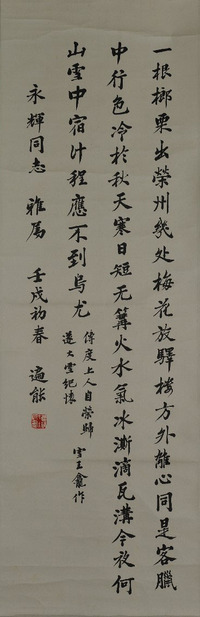 一根榔栗出榮州幾处梅花放驛楼方外離心同是客臘
中行色冷於秋天寒日短无篝火水氣冰澌滴瓦溝今夜何
山雲中宿计程應不到乌尤
傳度上人自榮歸
遇大雪纪懷
雪王龛作
永輝同志 雅属 壬戌初春 遍能